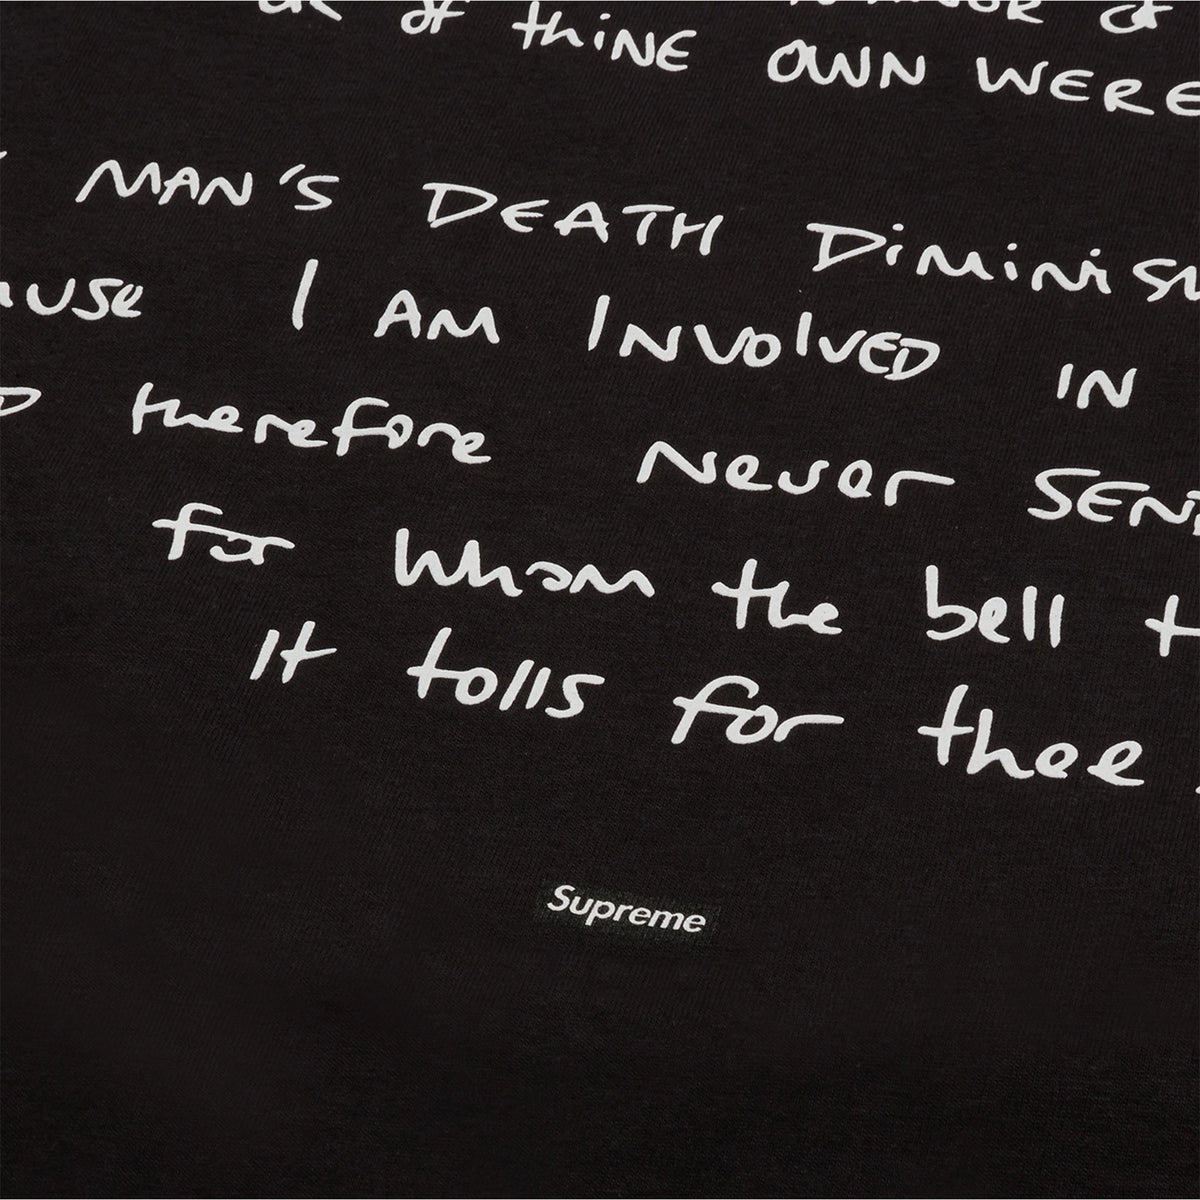 OR of thiNE OWN WERE
MAN'S DEATH DiMiNiSH
ause I AM INVOlVED IN
D therefore Never SEND
for Whom the bell t
It tolls for thee .
Supreme